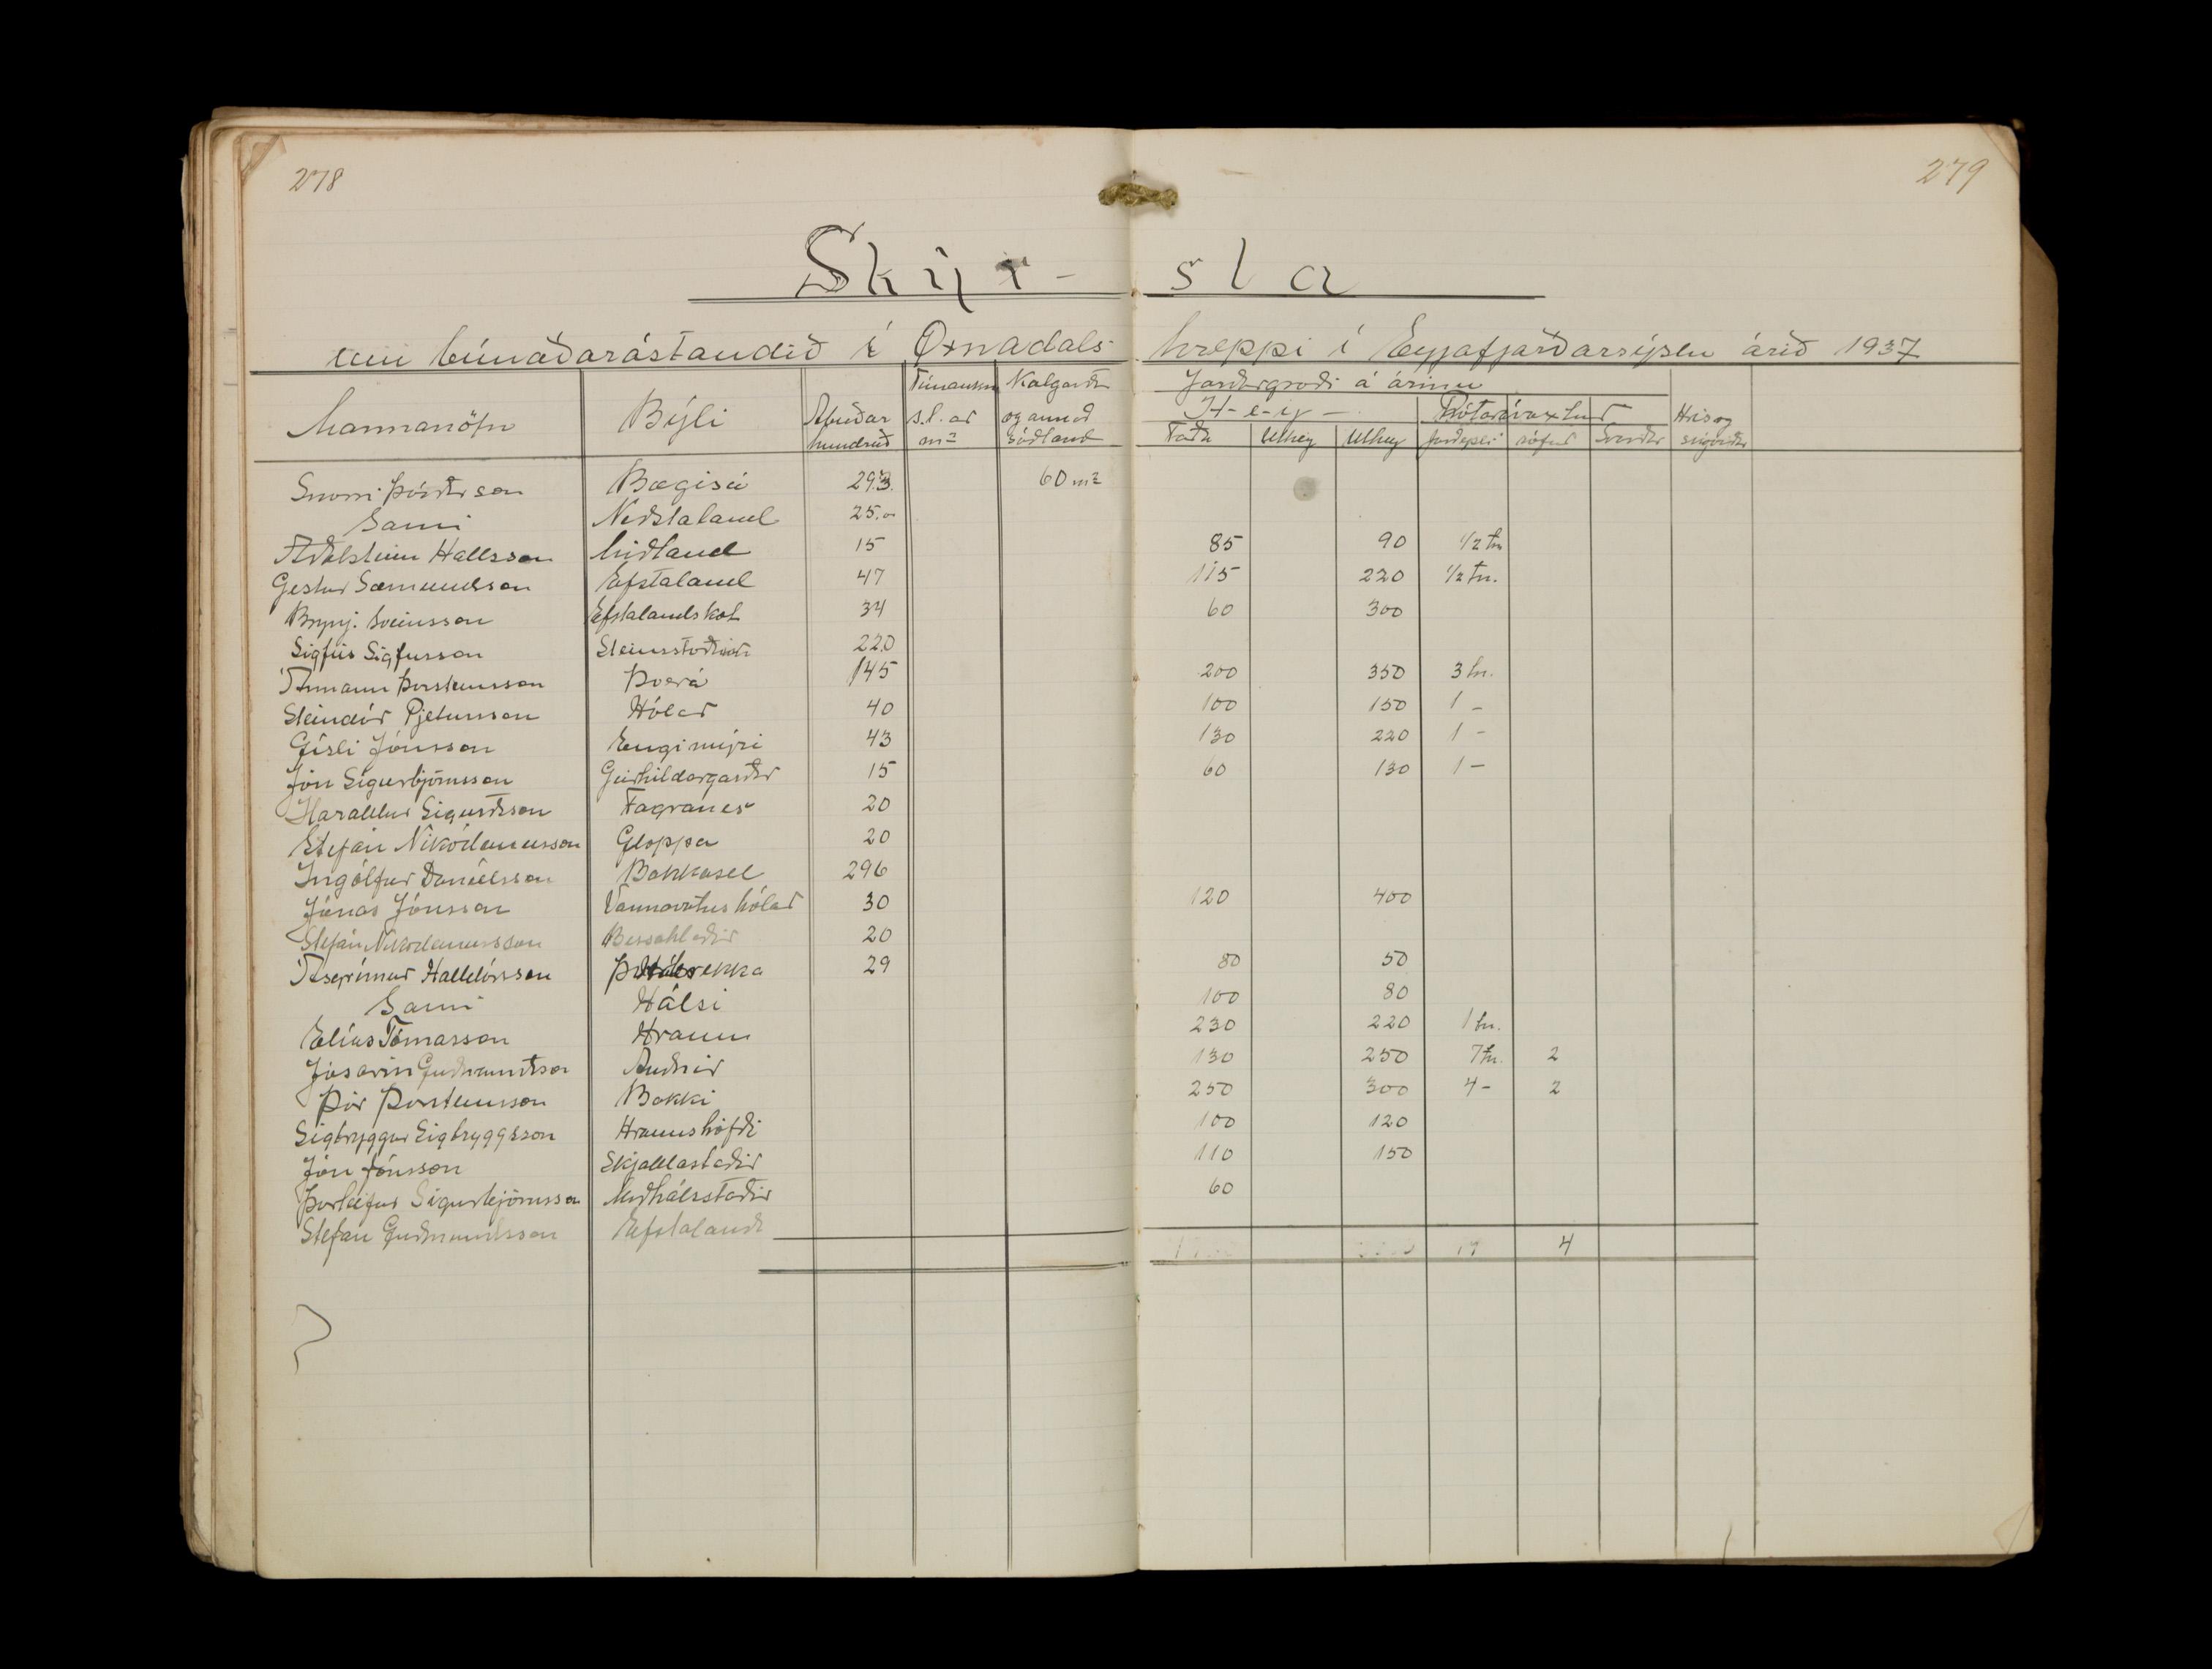 278
279
Skýr- sla
um búnaðarástandið í Öxnadals- hreppi í Eyjafjarðarsýslu árið 1937
Mannanöfn Býli Ábúðar hundruð Túnaukn s.l. ár m² Kálgarðr og annað sáðland Jarðargróði á árinu
H-e-y- Rótarávextur Hrís og
Taða Úthey Úthey jarðepli rófur Svörðr
Snorri Þórðarson Bægisá 29.3. 60 m²
Sami Neðstaland 25.00
Aðalsteinn Hallsson Miðland 15 85 90 1/2 tn
Gestur Sæmundsson Efstaland 47 115 220 1/2 tn.
Brynj. Sveinsson Efstalandskot 34 60 300
Sigfús Sigfússon Steinsstaðir 220
Ármann Þorsteinsson Þverá 145 200 350 3 tn.
Steindór Pjetursson Hólar 40 100 150 1 -
Gísli Jónsson Engimýri 43 130 220 1 -
Jón Sigurbjörnsson Geirhildargarðr 15 60 130 1 -
Haraldur Sigurðsson Fagranes 20
Stefán Nikódemusson Gloppa 20
Ingólfur Daníelsson Bakkasel 296
Jónas Jónsson Varmavatnshólar 30 120 400
Stefán Nikódemusson Bessahlaðir 20
Ásgrímur Halldórsson Þverbrekka 29 80 50
Sami Hálsi 100 80
Elías Tómasson Hraun 230 220 1 tn.
Jósavin Guðmundsson Auðnir 130 250 7 tn. 2
Þór Þorsteinsson Bakki 250 300 4 - 2
Sigtryggur Sigtryggsson Hraunshöfði 100 120
Jón Jónsson Skjaldastaðir 110 150
Þorleifur Sigurbjörnsson Miðhálsstaðir 60
Stefán Guðmundsson Efstalandi
4